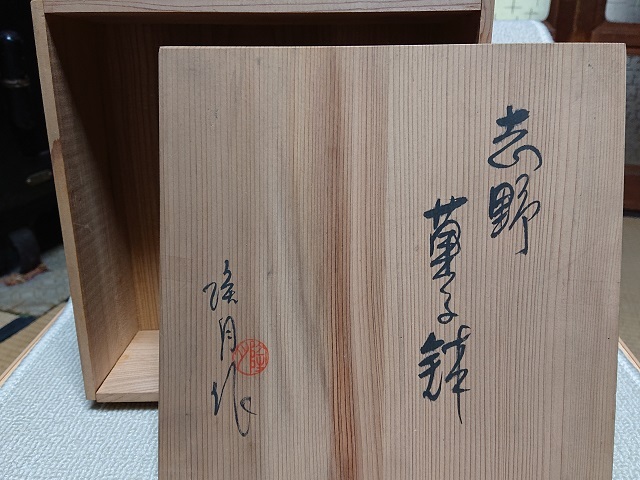 志野
菓子鉢
陶月作